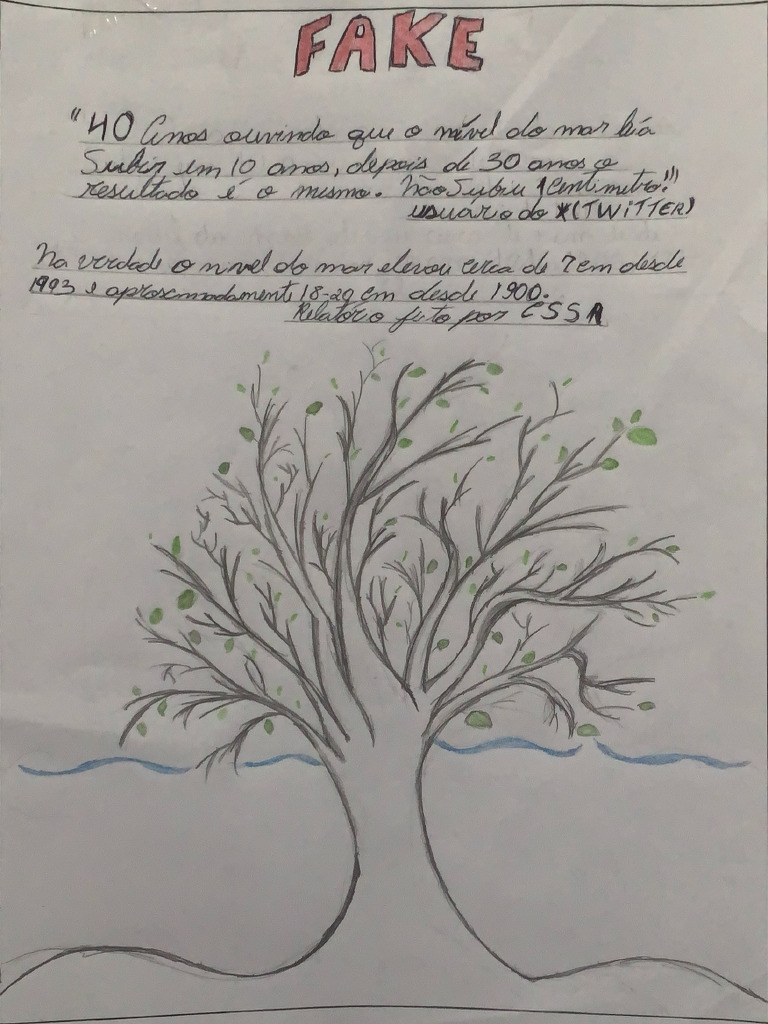 FAKE
"40 Anos ouvindo que o nível do mar hía
Subir em 10 anos, depois de 30 anos o
resultado é o mesmo. Não Subiu 1 Centimetro!"
usuário do X (TWITTER)
Na verdade o nível do mar elevou cerca de 7cm desde
1993 e aproximadamente 18-20 cm desde 1900.
Relatório feito por CSSR